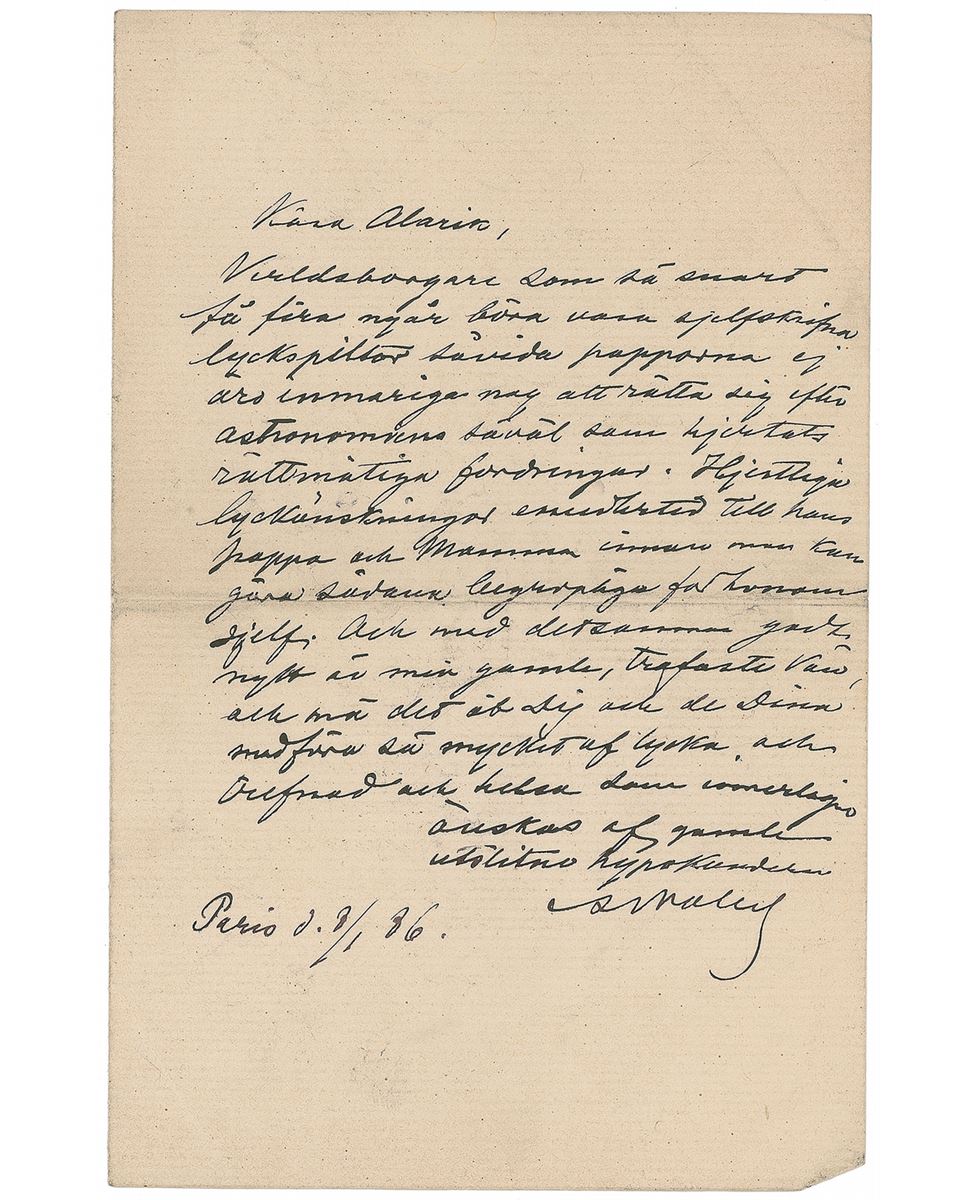 Kära Alarik,
Verldsborgare som så snart
få fira nyår böra vara sjelfskrifna
lyckspiltar såvida papporna ej
äro inmariga nog att rätta sig efter
astronomiens såväl som hjertats
rättmätiga fordringar. Hjertliga
lyckönskningar emellertid till hans
pappa och Mamma innan man kan
göra sådana begripliga for honom
sjelf. Och med detsamma godt
nytt år min gamle, trofaste Vän,
och må det åt Dig och de Dina
medföra så mycket af lycka och
trefnad och helsa som innerligt
önskas af gamle
utslitne hypokondern
A Nobel
Paris d. 8/1 86.